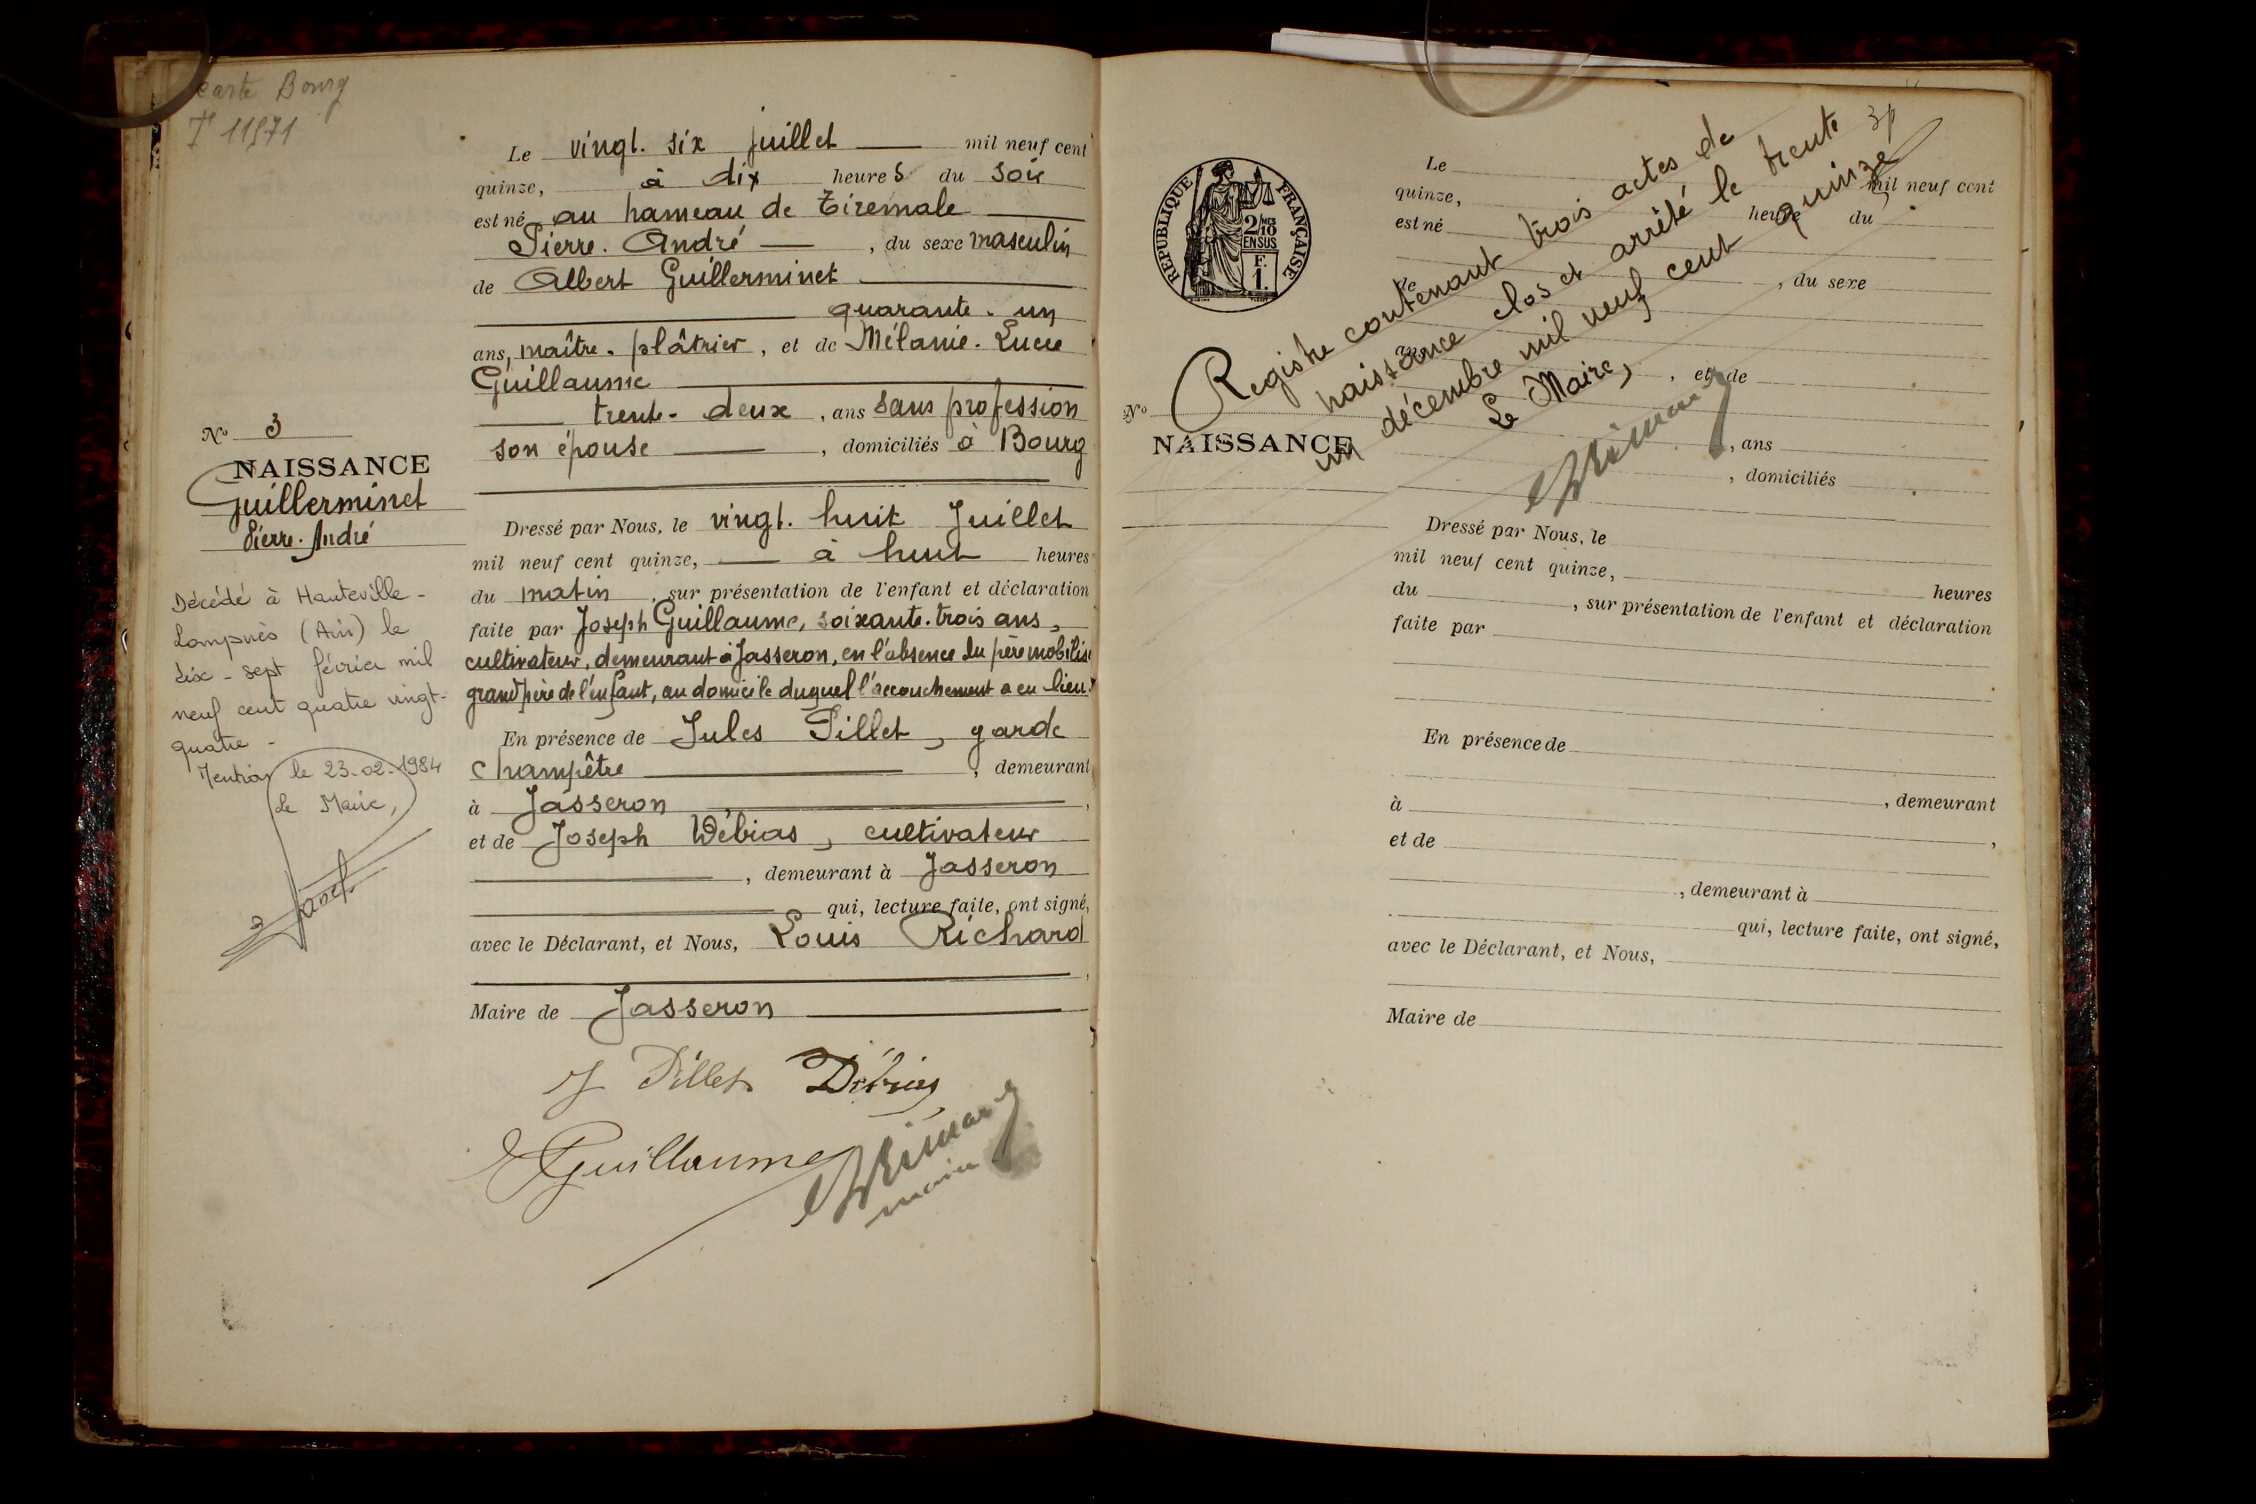 carte Bourg
Le vingt. six juillet mil neuf cent
quinze, à dix heures du soir
est né au hameau de Tiremale
Pierre. André, du sexe masculin
de Albert Guillerminet
quarante. un
ans, maître. plâtrier, et de Mélanie. Lucie
Guillaume
trente- deux, ans sans profession
son épouse, domiciliés à Bourg
No 3
NAISSANCE
Guillerminet
Pierre. André
Décédé à Hauteville-
Lompnès (Ain) le
dix-sept février mil
neuf cent quatre vingt-
quatre-
Mention le 23-02-1984
Le Maire,
Dressé par Nous, le vingt. huit Juillet
mil neuf cent quinze, à huit heures
du matin, sur présentation de l'enfant et déclaration
faite par Joseph Guillaume, soixante. trois ans,
cultivateur, demeurant à Jasseron, en l'absence du père mobilisé
grand père de l'enfant, au domicile duquel l'accouchement a eu lieu.
En présence de Jules Pillet, garde
champêtre, demeurant
à Jasseron,
et de Joseph Débias, cultivateur
, demeurant à Jasseron
qui, lecture faite, ont signé,
avec le Déclarant, et Nous, Louis Richard
,
Maire de Jasseron
J Pillet Débias
Guillaume
maire
RÉPUBLIQUE FRANÇAISE
2/10 MES
EN SUS
F.
1.
Registre contenant trois actes de
naissance clos et arrêté le trente
un décembre mil neuf cent quinze
Le Maire,
Le mil neuf cent
quinze, heure du
est né
de, du sexe
ans, et de
No
NAISSANCE
, ans
, domiciliés
Dressé par Nous, le
mil neuf cent quinze, heures
du, sur présentation de l'enfant et déclaration
faite par
En présence de
, demeurant
à,
et de
, demeurant à
qui, lecture faite, ont signé,
avec le Déclarant, et Nous,
Maire de